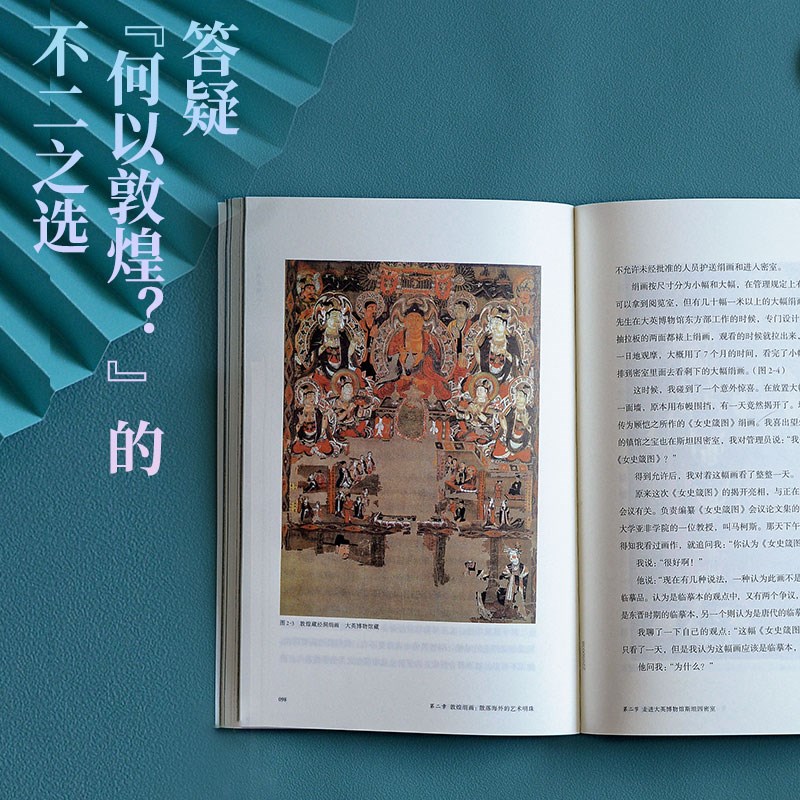 答疑
『何以敦煌？』的
不二之选
图 2-3 敦煌藏经洞绢画 大英博物馆藏
098
第二章 敦煌绢画：散落海外的艺术明珠
不允许未经批准的人员护送绢画和进入密室。
绢画按尺寸分为小幅和大幅，在管理规定上有
可以拿到阅览室，但有几十幅一米以上的大幅绢画
先生在大英博物馆东方部工作的时候，专门设计
抽拉板的两面都裱上绢画，观看的时候就拉出来，
一日地观摩，大概用了 7 个月的时间，看完了小幅
排到密室里面去看剩下的大幅绢画。（图 2-4）
这时候，我碰到了一个意外惊喜。在放置大幅
一面墙，原本用布幔围挡，有一天竟然揭开了。
传为顾恺之所作的《女史箴图》绢画。我喜出望
的镇馆之宝也在斯坦因密室，我对管理员说：“我
《女史箴图》？”
得到允许后，我对着这幅画看了整整一天。
原来这次《女史箴图》的揭开亮相，与正在
会议有关。负责编纂《女史箴图》会议论文集的
大学亚非学院的一位教授，叫马柯斯。那天下午
得知我看过画作，就追问我：“你认为《女史箴图
我说：“很好啊！”
他说：“现在有几种说法，一种认为此画不是
临摹品。认为是临摹本的观点中，又有两个争议，
是东晋时期的临摹本，另一个则认为是唐代的临摹
我聊了一下自己的观点：“这幅《女史箴图
只看了一天，但是我认为这幅画应该是临摹本，
他问我：“为什么？”
第二节 走进大英博物馆斯坦因密室